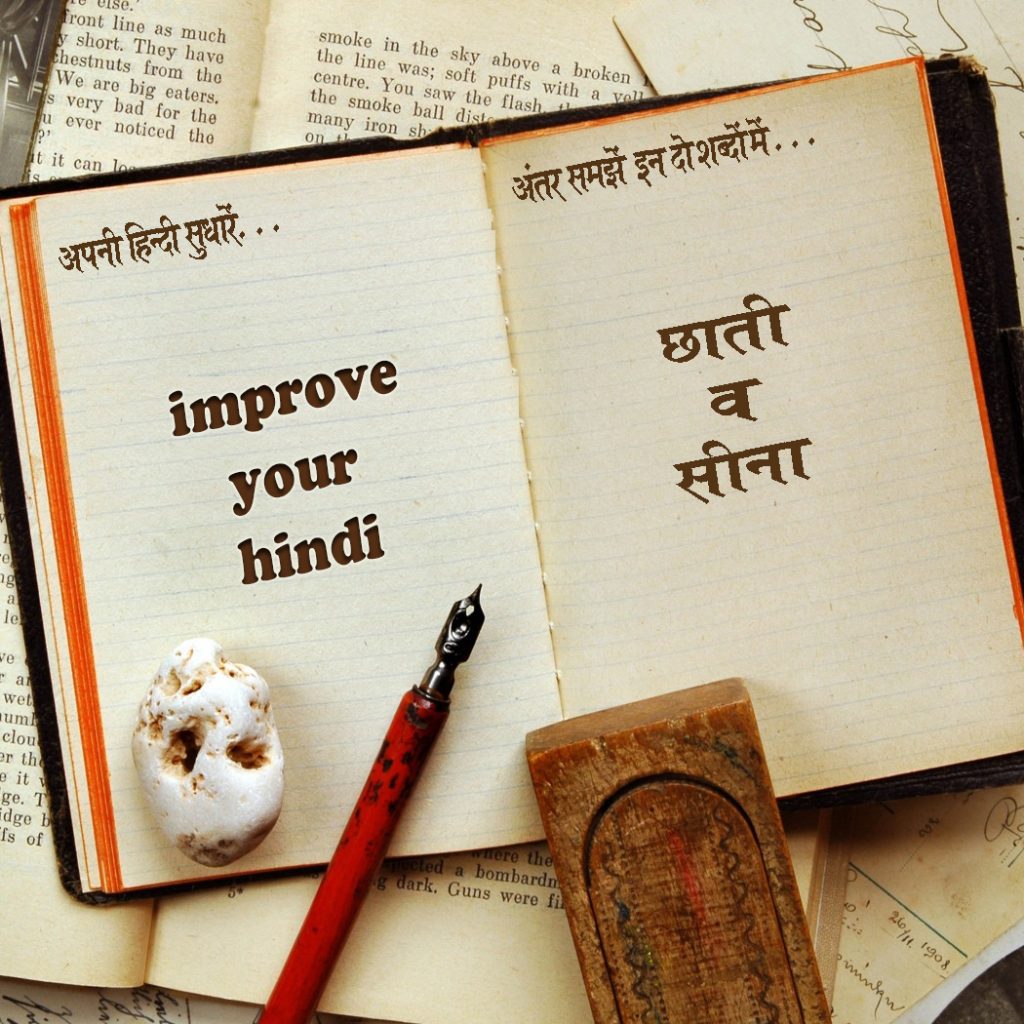 e else.'
front line as much
y short. They have
chestnuts from the
We are big eaters.
s very bad for the
u ever noticed the
?'
ut it can
smoke in the sky above a broken
the line was; soft puffs with a yell
centre. You saw the flash,
the smoke ball dist
many iron
अपनी हिन्दी सुधारें. . .
improve
your
hindi
अंतर समझें इन दो शब्दों में . . .
छाती
व
सीना
where the
pected a bombardm
g dark. Guns were fi
5*
26/11 1908